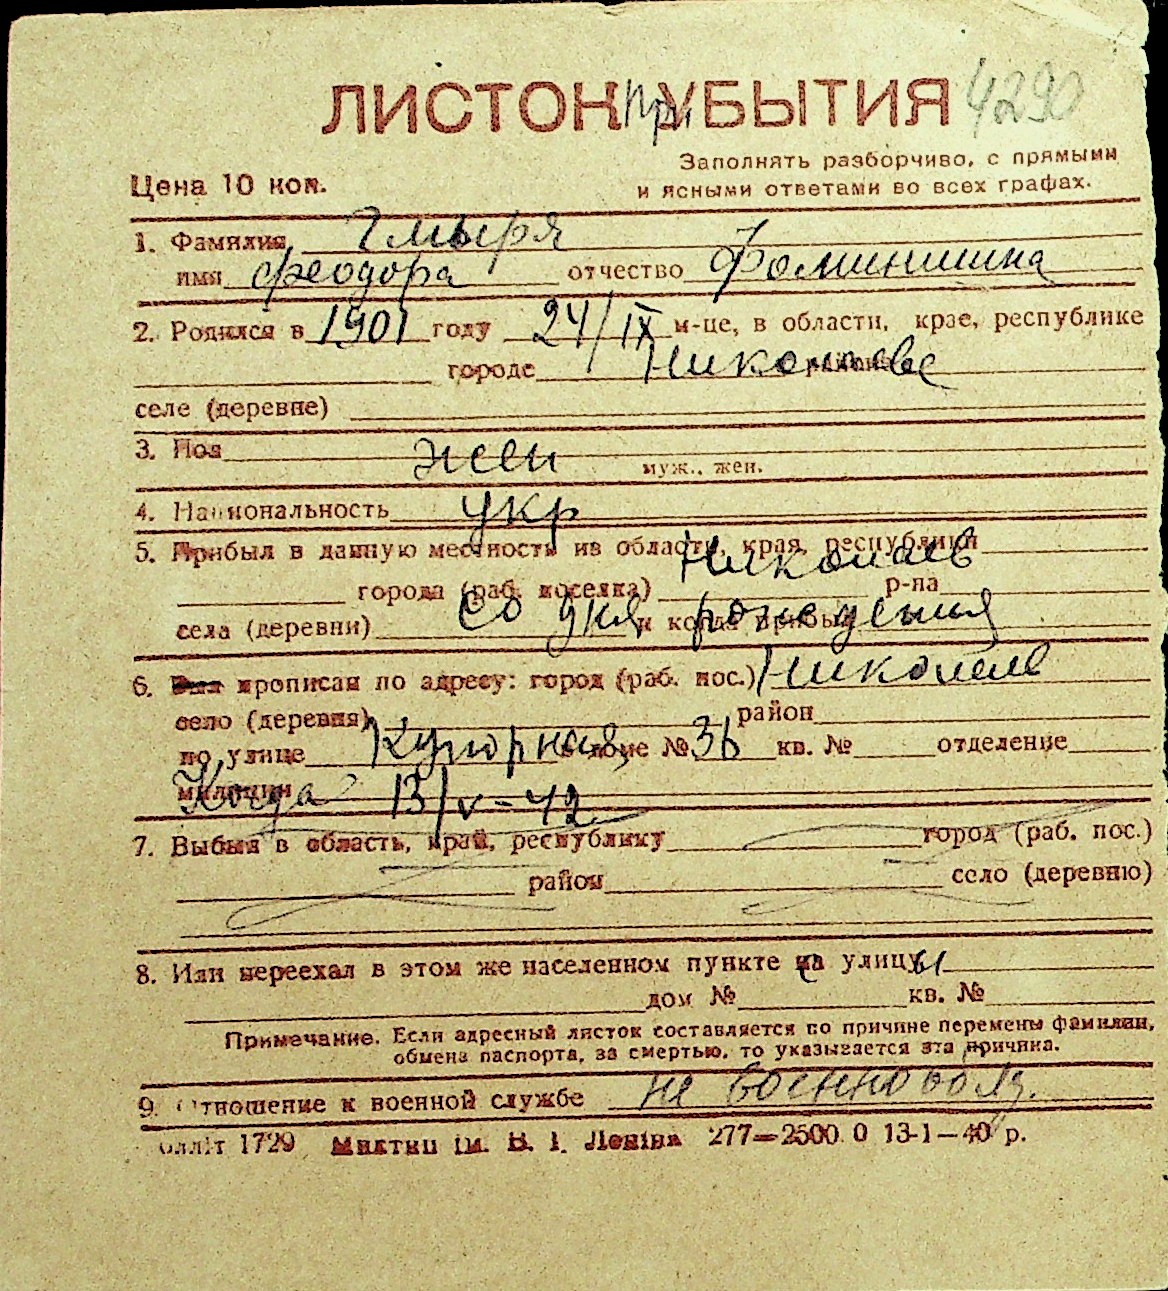 ЛИСТОК При УБЫТИЯ 4290
Заполнять разборчиво, с прямыми
Цена 10 коп. и ясными ответами во всех графах.
1. Фамилия Гмыря
имя Феодора отчество Фоминишна
2. Родился в 1901 году 24/IX м-це, в области, крае, республике
городе Николаеве
селе (деревне)
3. Пол жен муж., жен.
4. Национальность укр
5. Прибыл в данную местность из области, края, республики Николаев
города (раб. поселка) р-на
села (деревни) со дня рождения и когда прибыл
6. Был прописан по адресу: город (раб. пос.) Николаев
село (деревня) район
по улице Купорная доме № 36 кв. № отделение
милиции Когда 13/V-42
7. Выбыл в область, край, республику город (раб. пос.)
район село (деревню)
8. Или переехал в этом же населенном пункте с улицы
дом № кв. №
Примечание. Если адресный листок составляется по причине перемены фамилии,
обмена паспорта, за смертью, то указывается эта причина.
9. Отношение к военной службе не военнообяз.
облліт 1729 Миктип ім. В. І. Леніна 277—2500 0 13-1—40 р.